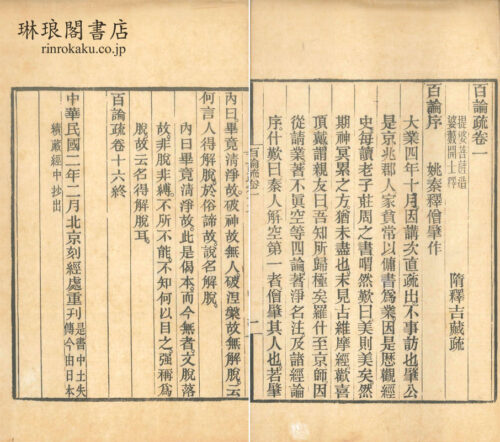 琳琅閣書店
rinrokaku.co.jp
百論疏卷一
提婆菩薩造
婆藪開士釋
隋釋吉藏疏
百論序 姚秦釋僧肇作
大業四年十月因講次直疏出不事訪也肇公
是京兆郡人家貧常以傭書爲業因是歷觀經
史每讀老子莊周之書喟然歎曰美則美矣然
期神冥累之方猶未盡也末見古維摩經歡喜
頂戴謂親友曰吾知所歸極矣羅什至京師因
從請業著不眞空等四論著淨名注及諸經論
序什歎曰秦人解空第一者僧肇其人也若肇
百論疏卷一
一
內曰畢竟清淨故破神故無人破涅槃故無解脫云
何言人得解脫於俗諦故說名解脫。
內曰畢竟清淨故。此是偈本。而今無者文脫落
故。非脫非縛。不所不能。不知何以目之。强稱爲
脫故云名得解脫耳。
百論疏卷十六終
中華民國二年二月北京刻經處重刊
是書中土失
傳今由日本
續藏經中抄出